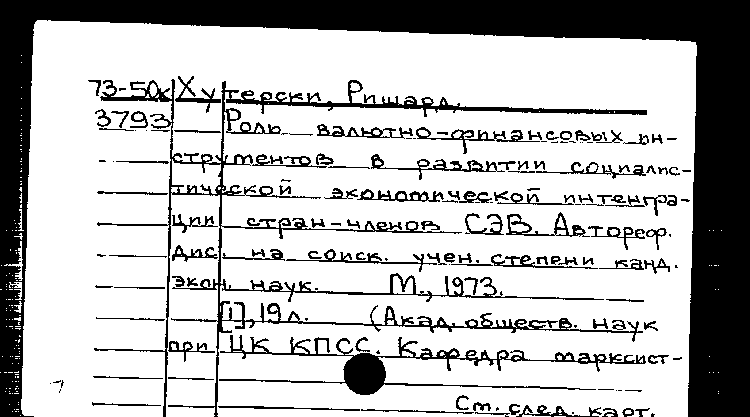 73-50к Хутерски, Ришард.
3793 Роль валютно-финансовых ин-
струментов в развитии социалис-
тической экономической интегра-
ции стран-членов СЭВ. Автореф.
дис. на соиск. учен. степени канд.
экон. наук. М., 1973.
[1], 19 л. (Акад. обществ. наук
при ЦК КПСС. Кафедра марксист-
См. след. карт.